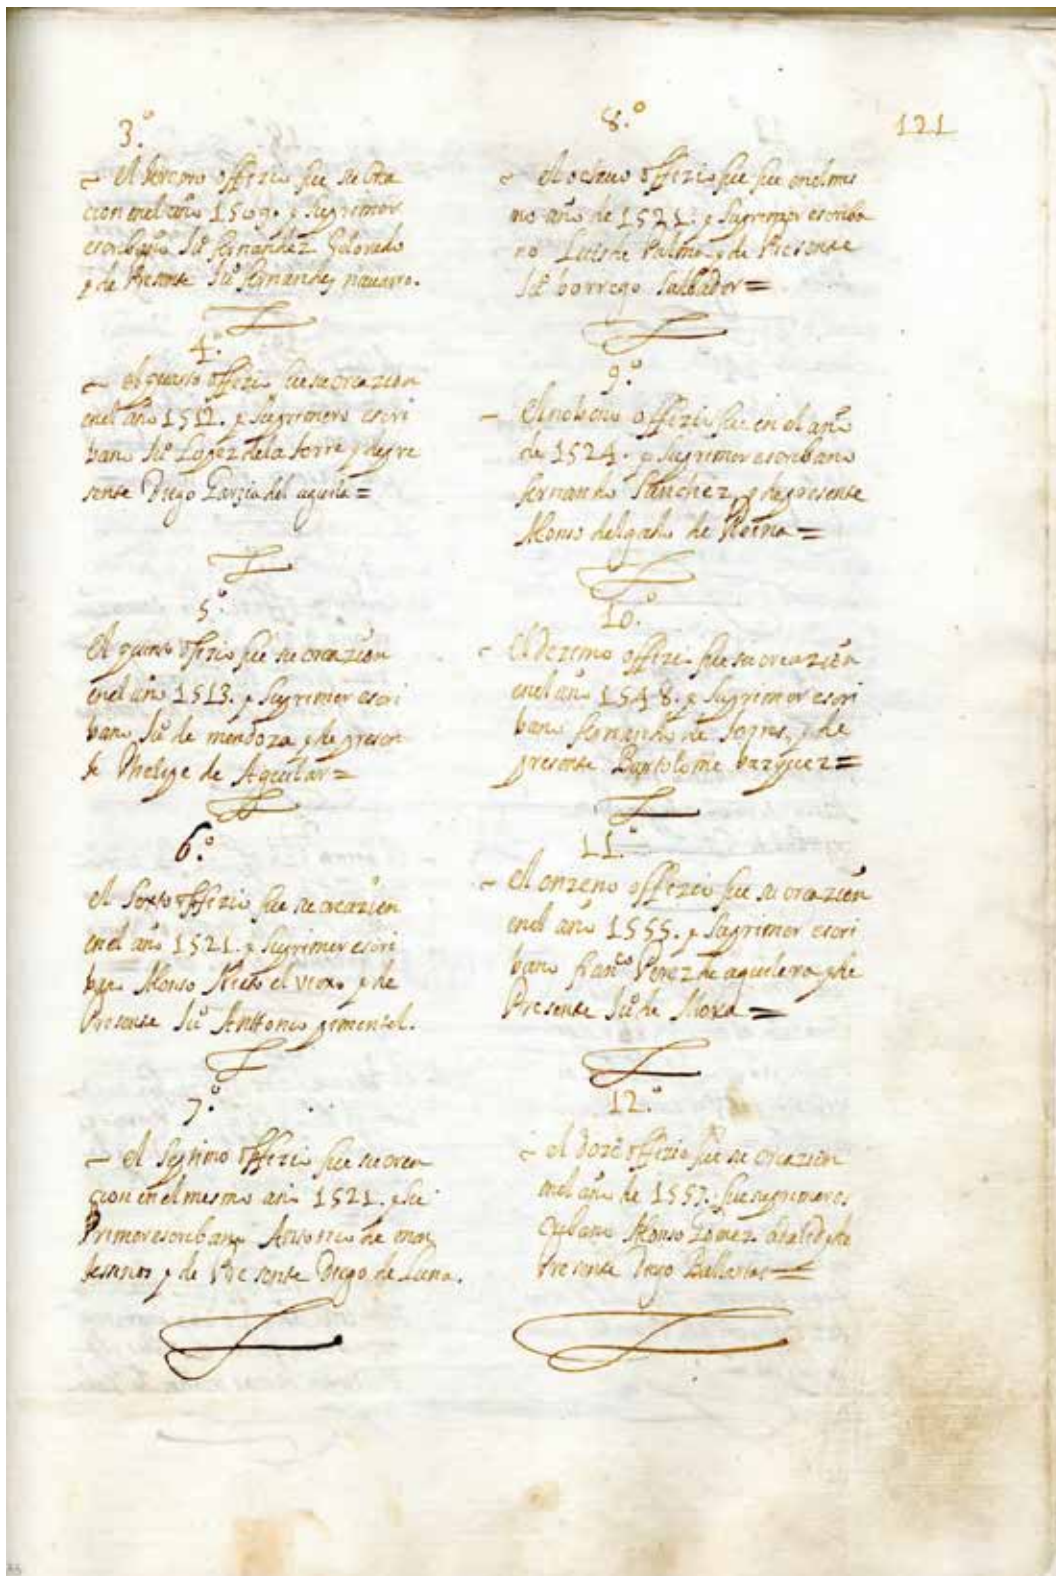 121
3.º
el tercero offizio fue su crea
cion en el año 1509. y su primer
escribano Juº fernandez Colorado
y de Presente Juº fernandez navarro.
4.º
el quarto offizio fue su creazion
en el año 1512. y su primero escri
bano Juº Lopez de la torre y de pre
sente Diego Garzia del aguila =
5.º
el quinto offizio fue su creazion
en el año 1513. y su primer escri
bano Juº de mendoza y de presen
te Phelipe de Aguilar =
6.º
el Sexto offizio fue su creazion
en el año 1521. y su primer escri
bano Alonso Nieto el viexo y de
Presente Juº Anttonio pimentel.
7.º
el Septimo offizio fue su crea
cion en el mesmo año 1521. y su
Primer escribano Antonio de
y de Presente Diego de Luna.
8.º
el octauo offizio fue en el mis
mo año de 1521. y su primer escriba
no Luis de Palma y de Presente
Juº borrego Salbador =
9.º
el nobeno offizio fue en el año
de 1524. y su primer escribano
fernando Sanchez y de presente
Alonso delgado de Reina =
10.º
el dezimo offizio fue su creazion
en el año 1548. y su primer escri
bano fernando de torres, y de
presente Bartolome bazquez =
11.º
el onzeno offizio fue su creazion
en el año 1555. y su primer escri
bano franco Perez de aguilera y de
Presente Juº de Mora =
12.º
el doze offizio fue su creazion
en el año de 1557. fue su primer es
cribano Alonso Gomez adalid y de
Presente Diego Ballartas =